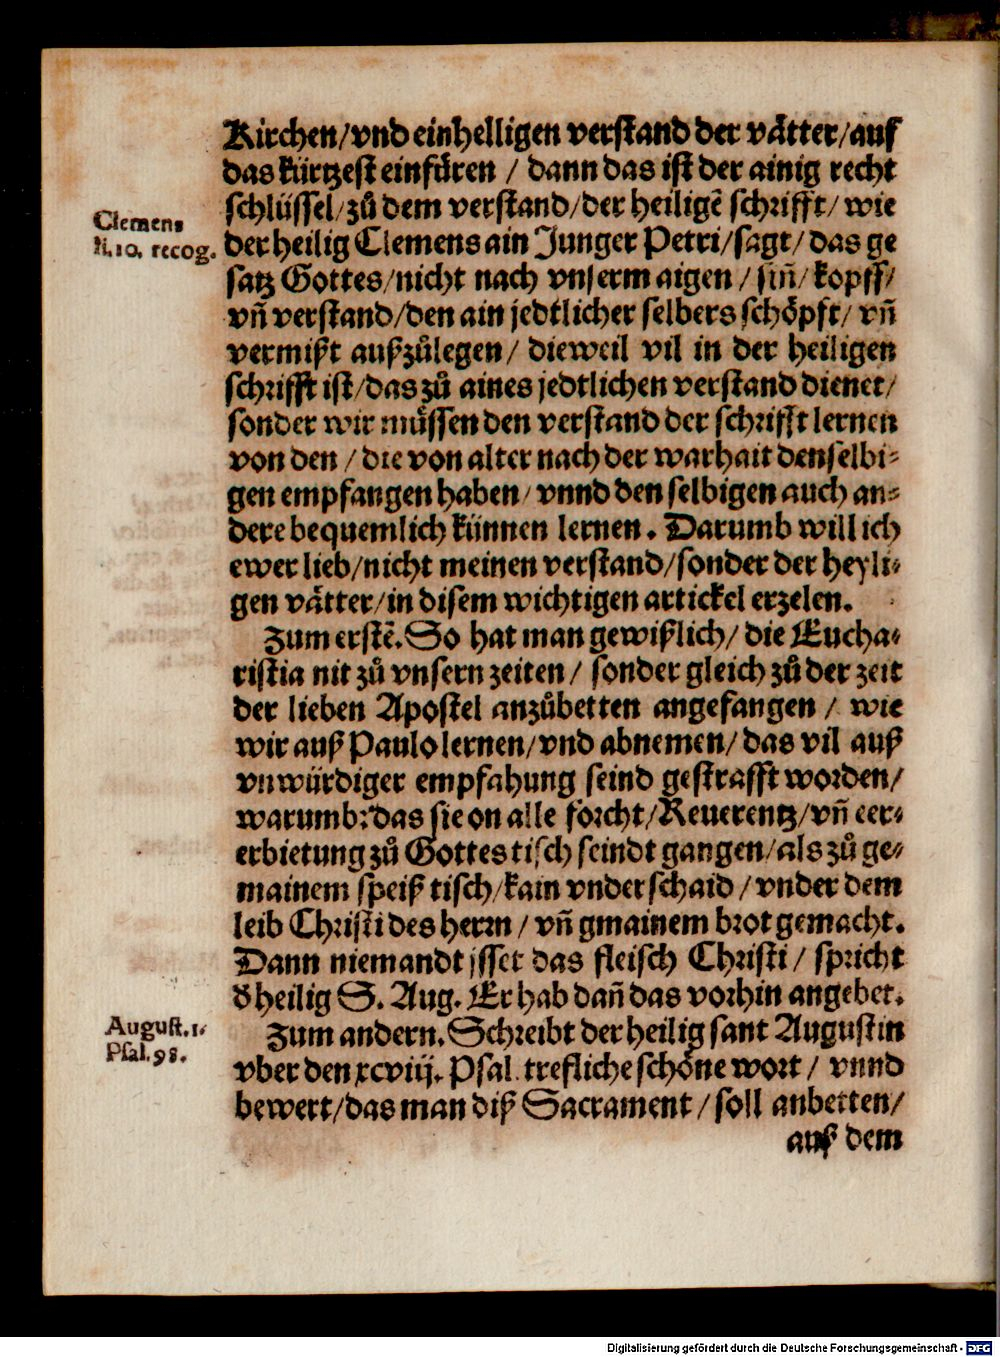 Kirchen/vnd einhelligen verstand der vätter/auf
das kürtzest einfüren / dann das ist der ainig recht
schlüssel/zů dem verstand/der heiligẽ schrifft/wie
Clemens
li.10. recog.
der heilig Clemens ain Junger Petri/sagt/das ge
satz Gottes/nicht nach vnserm aigen / sin̄/kopff/
vn̄ verstand/den ain jedtlicher selbers schöpft/ vn̄
vermißt außzůlegen / dieweil vil in der heiligen
schrifft ist/das zů aines jedtlichen verstand dienet/
sonder wir müssen den verstand der schrifft lernen
von den / die von alter nach der warhait denselbi⸗
gen empfangen haben/ vnnd den selbigen auch an⸗
dere bequemlich künnen lernen. Darumb will ich
ewer lieb/nicht meinen verstand/sonder der heyli⸗
gen vätter/in disem wichtigen artickel erzelen.
Zum erstẽ. So hat man gewißlich/ die Eucha⸗
ristia nit zů vnsern zeiten / sonder gleich zů der zeit
der lieben Apostel anzůbetten angefangen / wie
wir auß Paulo lernen/vnd abnemen/ das vil auß
vnwürdiger empfahung seind gestrafft worden/
warumb: das sie on alle forcht/Reuerentz/vn̄ eer⸗
erbietung zů Gottes tisch seindt gangen/als zů ge⸗
mainem speiß tisch/kain vnderschaid / vnder dem
leib Christi des herrn / vn̄ gmainem brot gemacht.
Dann niemandt jsset das fleisch Christi / spricht
d̕ heilig S. Aug. Er hab dan̄ das vorhin angebet.
August. i.
Psal. 98.
Zum andern. Schreibt der heilig sant Augustin
vber den xcviij. Psal. trefliche schöne wort / vnnd
bewert/das man diß Sacrament / soll anbetten/
auß dem
Digitalisierung gefördert durch die Deutsche Forschungsgemeinschaft - DFG